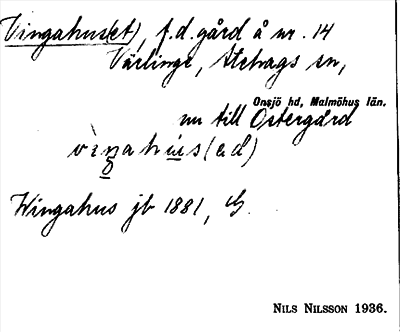 Vingahus(et), f.d. gård å nr. 14
Värlinge, Stehags sn,
Onsjö hd, Malmöhus län.
nu till Östergård
viŋahús(ed)
Wingahus jb 1881, G.
NILS NILSSON 1936.